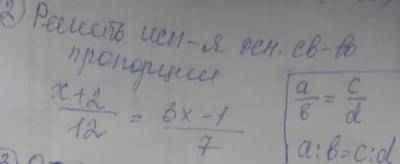 2) Решить исп-я осн. св-во
пропорции
x+2/12 = 3x-1/7
a/b = c/d
a:b=c:d